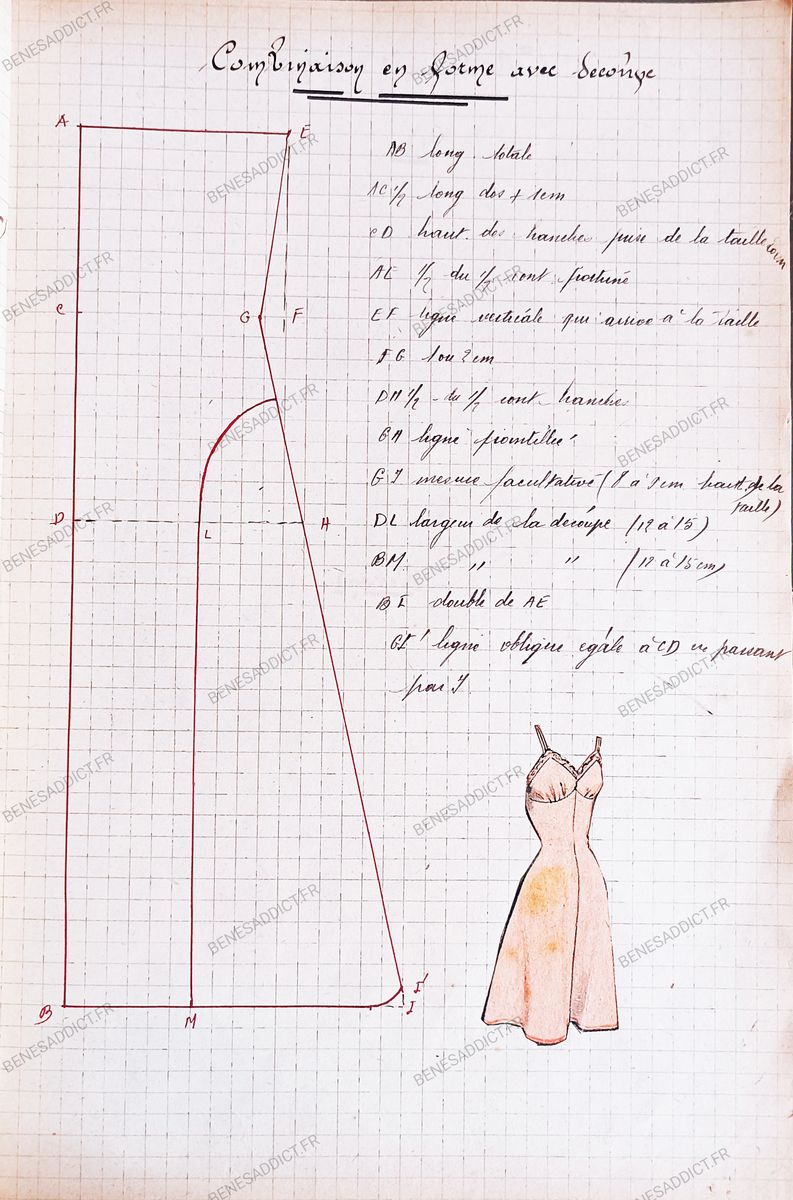 Combinaison en forme avec découpe
A
E
AB long totale
AC ½ long dos + 1cm
CD haut. des hanches prise de la taille
AE ½ du ½ cont poitrine
C
G
F
EF ligne verticale qui arrive à la taille
FG 1 ou 2 cm
DH ½ du ½ cont hanches
GH ligne pointillée
GJ mesure facultative (8 à 9cm haut. de la taille)
D
L
H
DL largeur de la découpe (12 à 15)
BM " " (12 à 15cm)
BI double de AE
GI' ligne oblique égale à CD en passant
par J
B
M
I'
I
BENESADDICT.FR